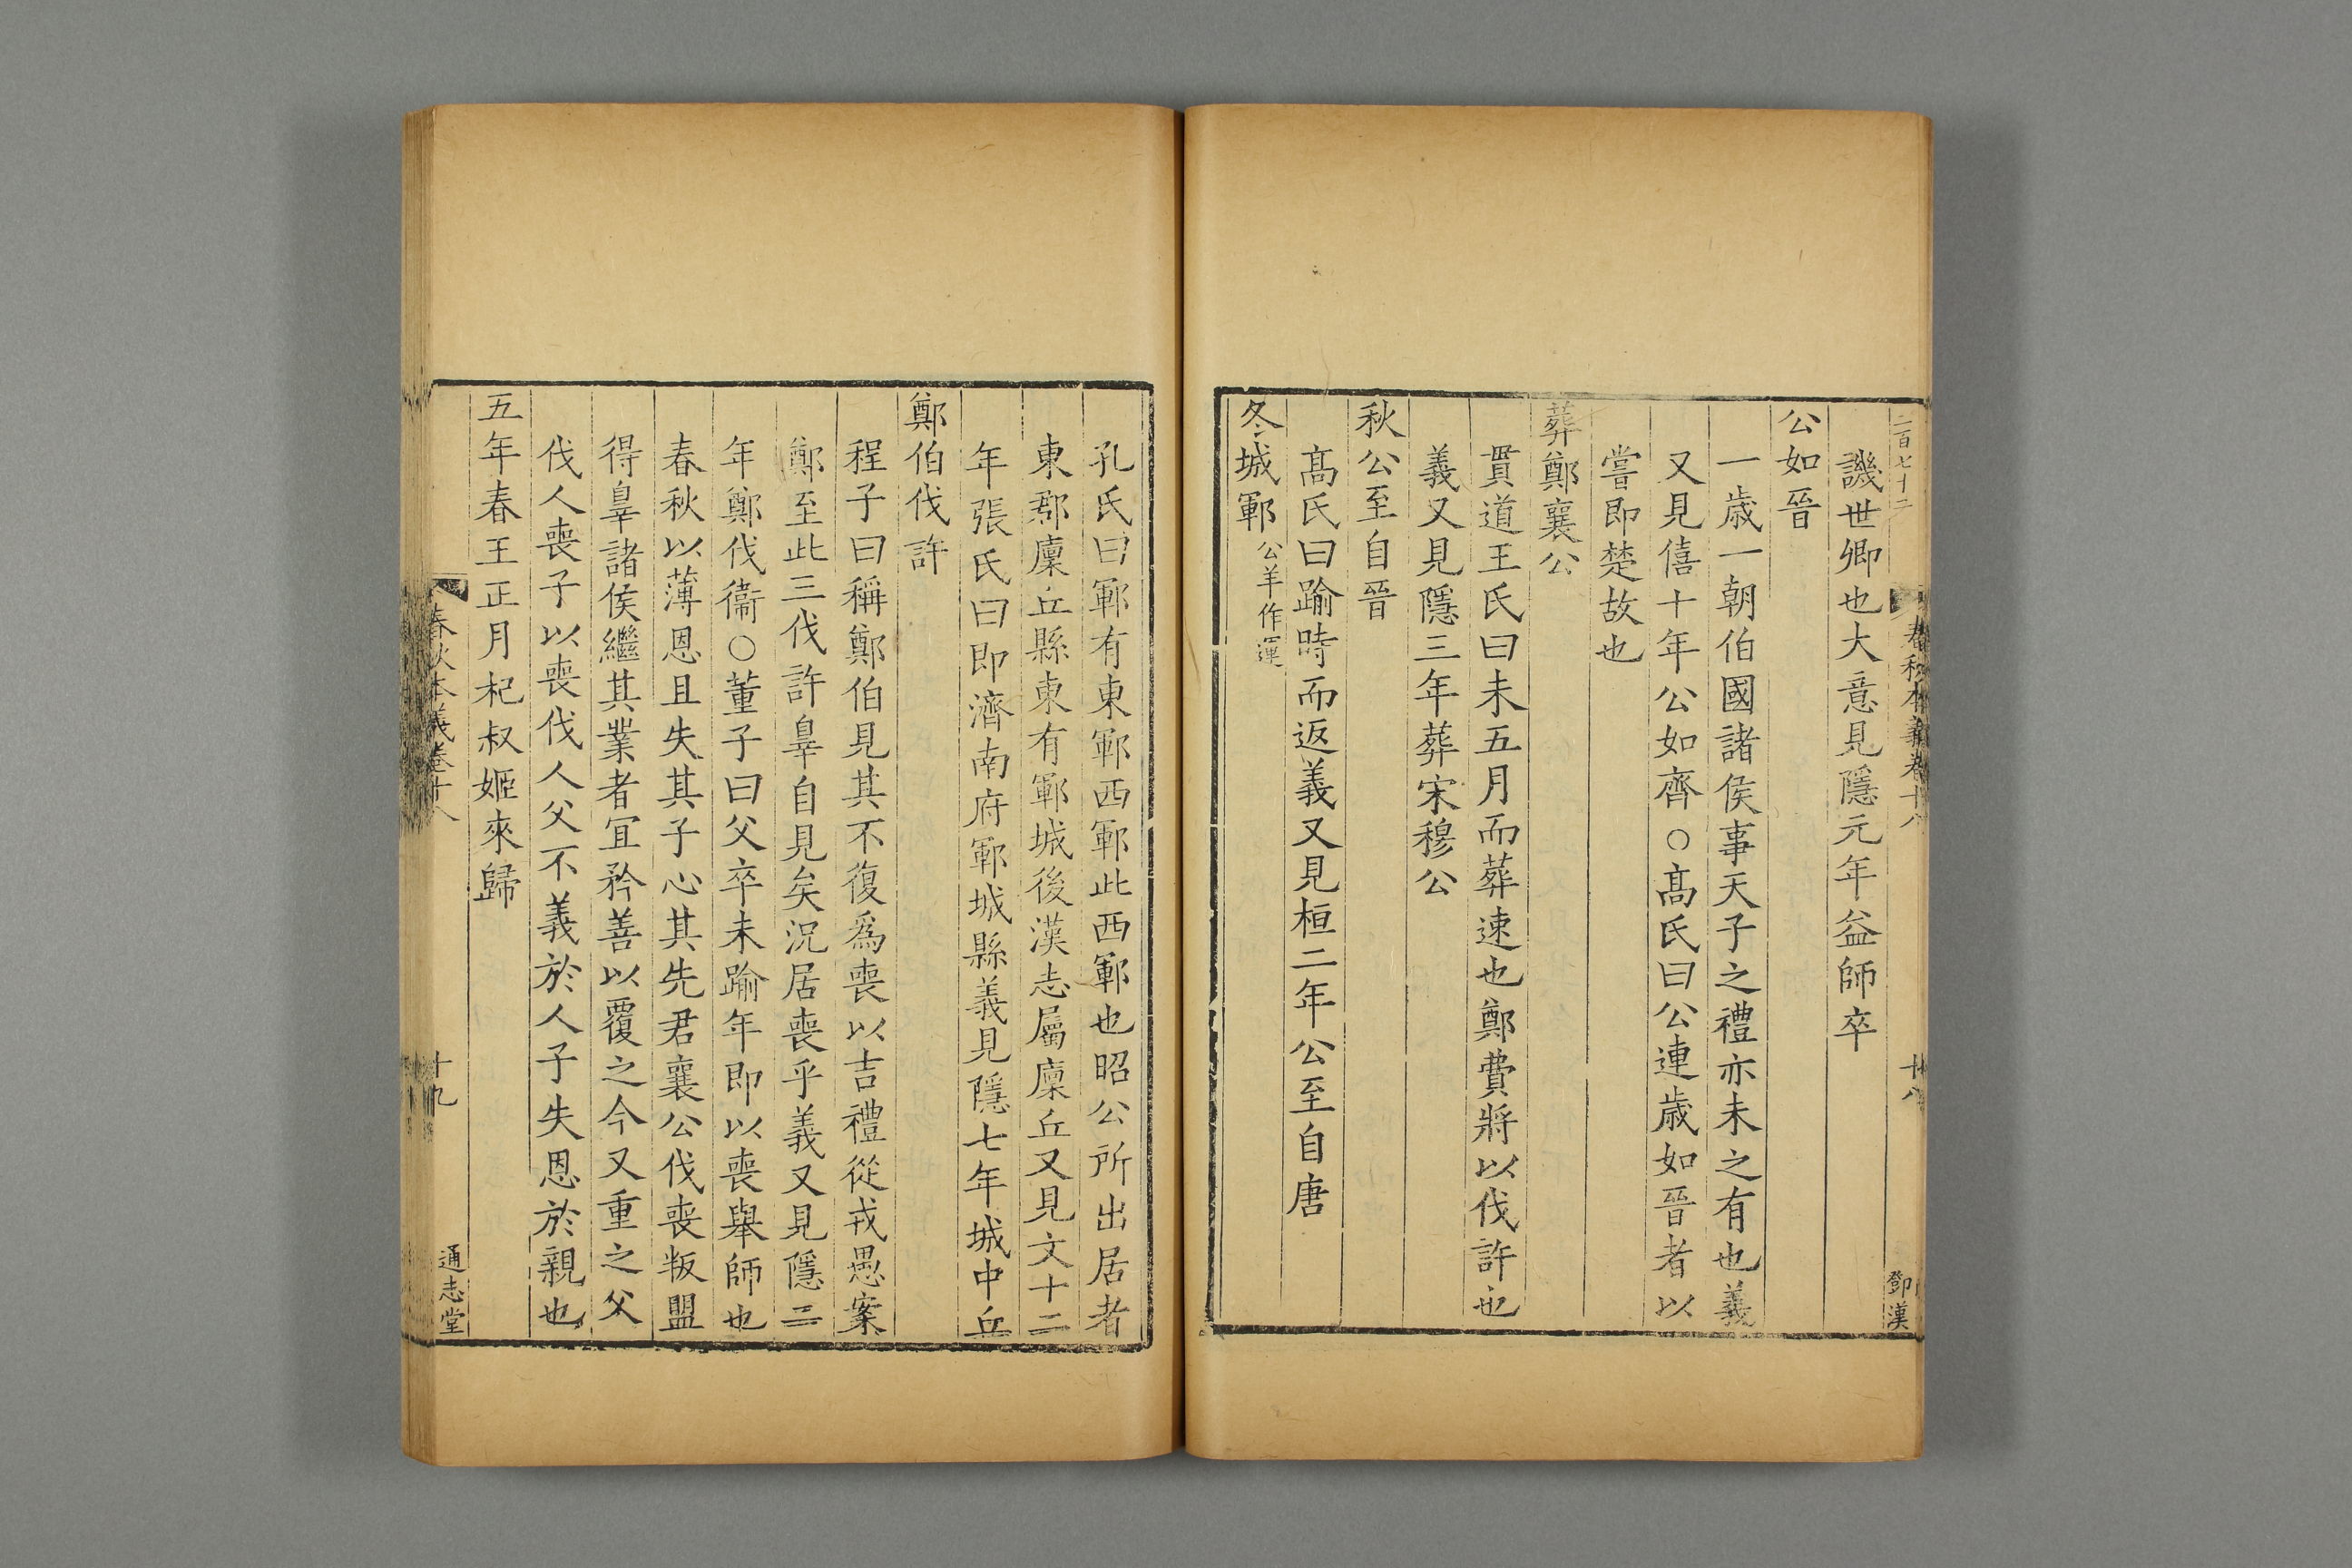 二百七十二
春秋本義卷十八
十八
鄧漢
譏世卿也大意見隱元年益師卒
公如晉
一歲一朝伯國諸侯事天子之禮亦未之有也義
又見僖十年公如齊○髙氏曰公連歲如晉者以
嘗即楚故也
葬鄭襄公
貫道王氏曰未五月而葬速也鄭費將以伐許也
義又見隱三年葬宋穆公
秋公至自晉
髙氏曰踰時而返義又見桓二年公至自唐
冬城鄆公羊作運
孔氏曰鄆有東鄆西鄆此西鄆也昭公所出居者
東郡廩丘縣東有鄆城後漢志屬廩丘又見文十二
年張氏曰即濟南府鄆城縣義見隱七年城中丘
鄭伯伐許
程子曰稱鄭伯見其不復爲喪以吉禮從戎愚案
鄭至此三伐許辠自見矣況居喪乎義又見隱二
年鄭伐衞○董子曰父卒未踰年即以喪舉師也
春秋以薄恩且失其子心其先君襄公伐喪叛盟
得辠諸侯繼其業者宜矜善以覆之今又重之父
伐人喪子以喪伐人父不義於人子失恩於親也
五年春王正月杞叔姬來歸
春秋本義卷十八
十九
通志堂